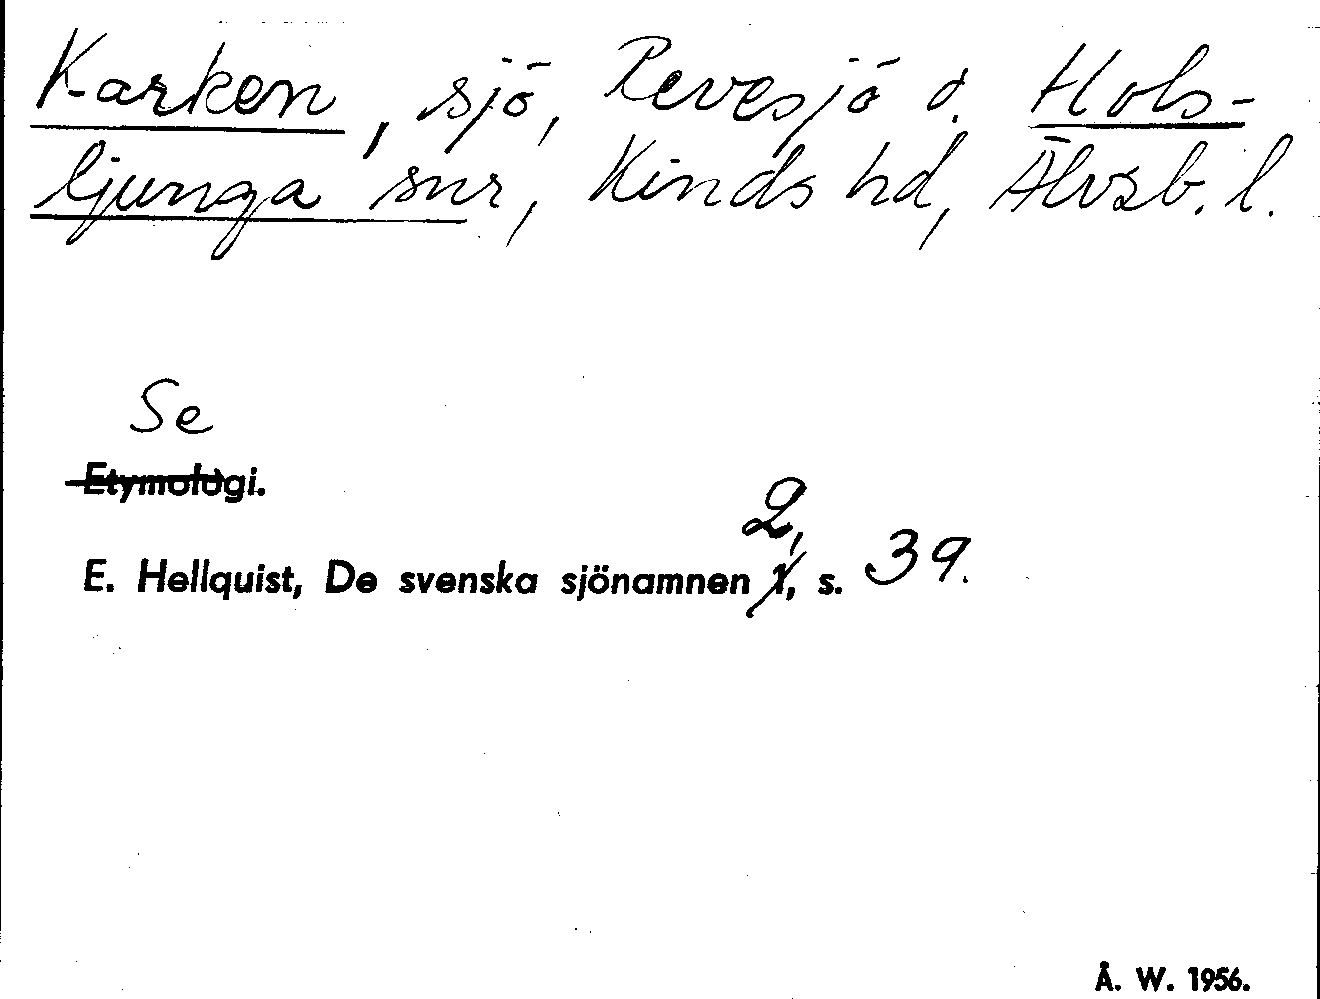 Karken, sjö, Revesjö o. Hols-
ljunga snr, Kinds hd, Älvsb. l.
Se
Etymologi.
2,
E. Hellquist, De svenska sjönamnen 1, s. 39.
Å. W. 1956.